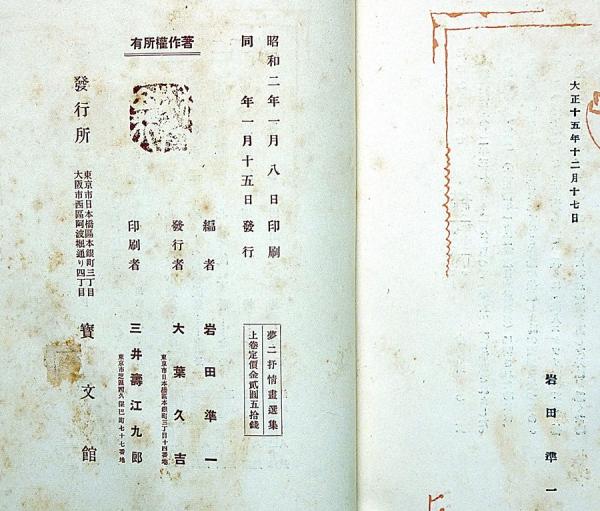 大正十五年十二月十七日
岩田準一
著作權所有
昭和二年一月八日印刷
同年一月十五日發行
夢二抒情畫選集
上卷定價金貳圓五拾錢
編者 岩田準一
發行者 大葉久吉
東京市日本橋區本銀町三丁目十四番地
印刷者 三井壽江九郎
東京市芝區西久保巴町七十七番地
發行所
東京市日本橋區本銀町三丁目
大阪市西區阿波堀通り四丁目
寶文館